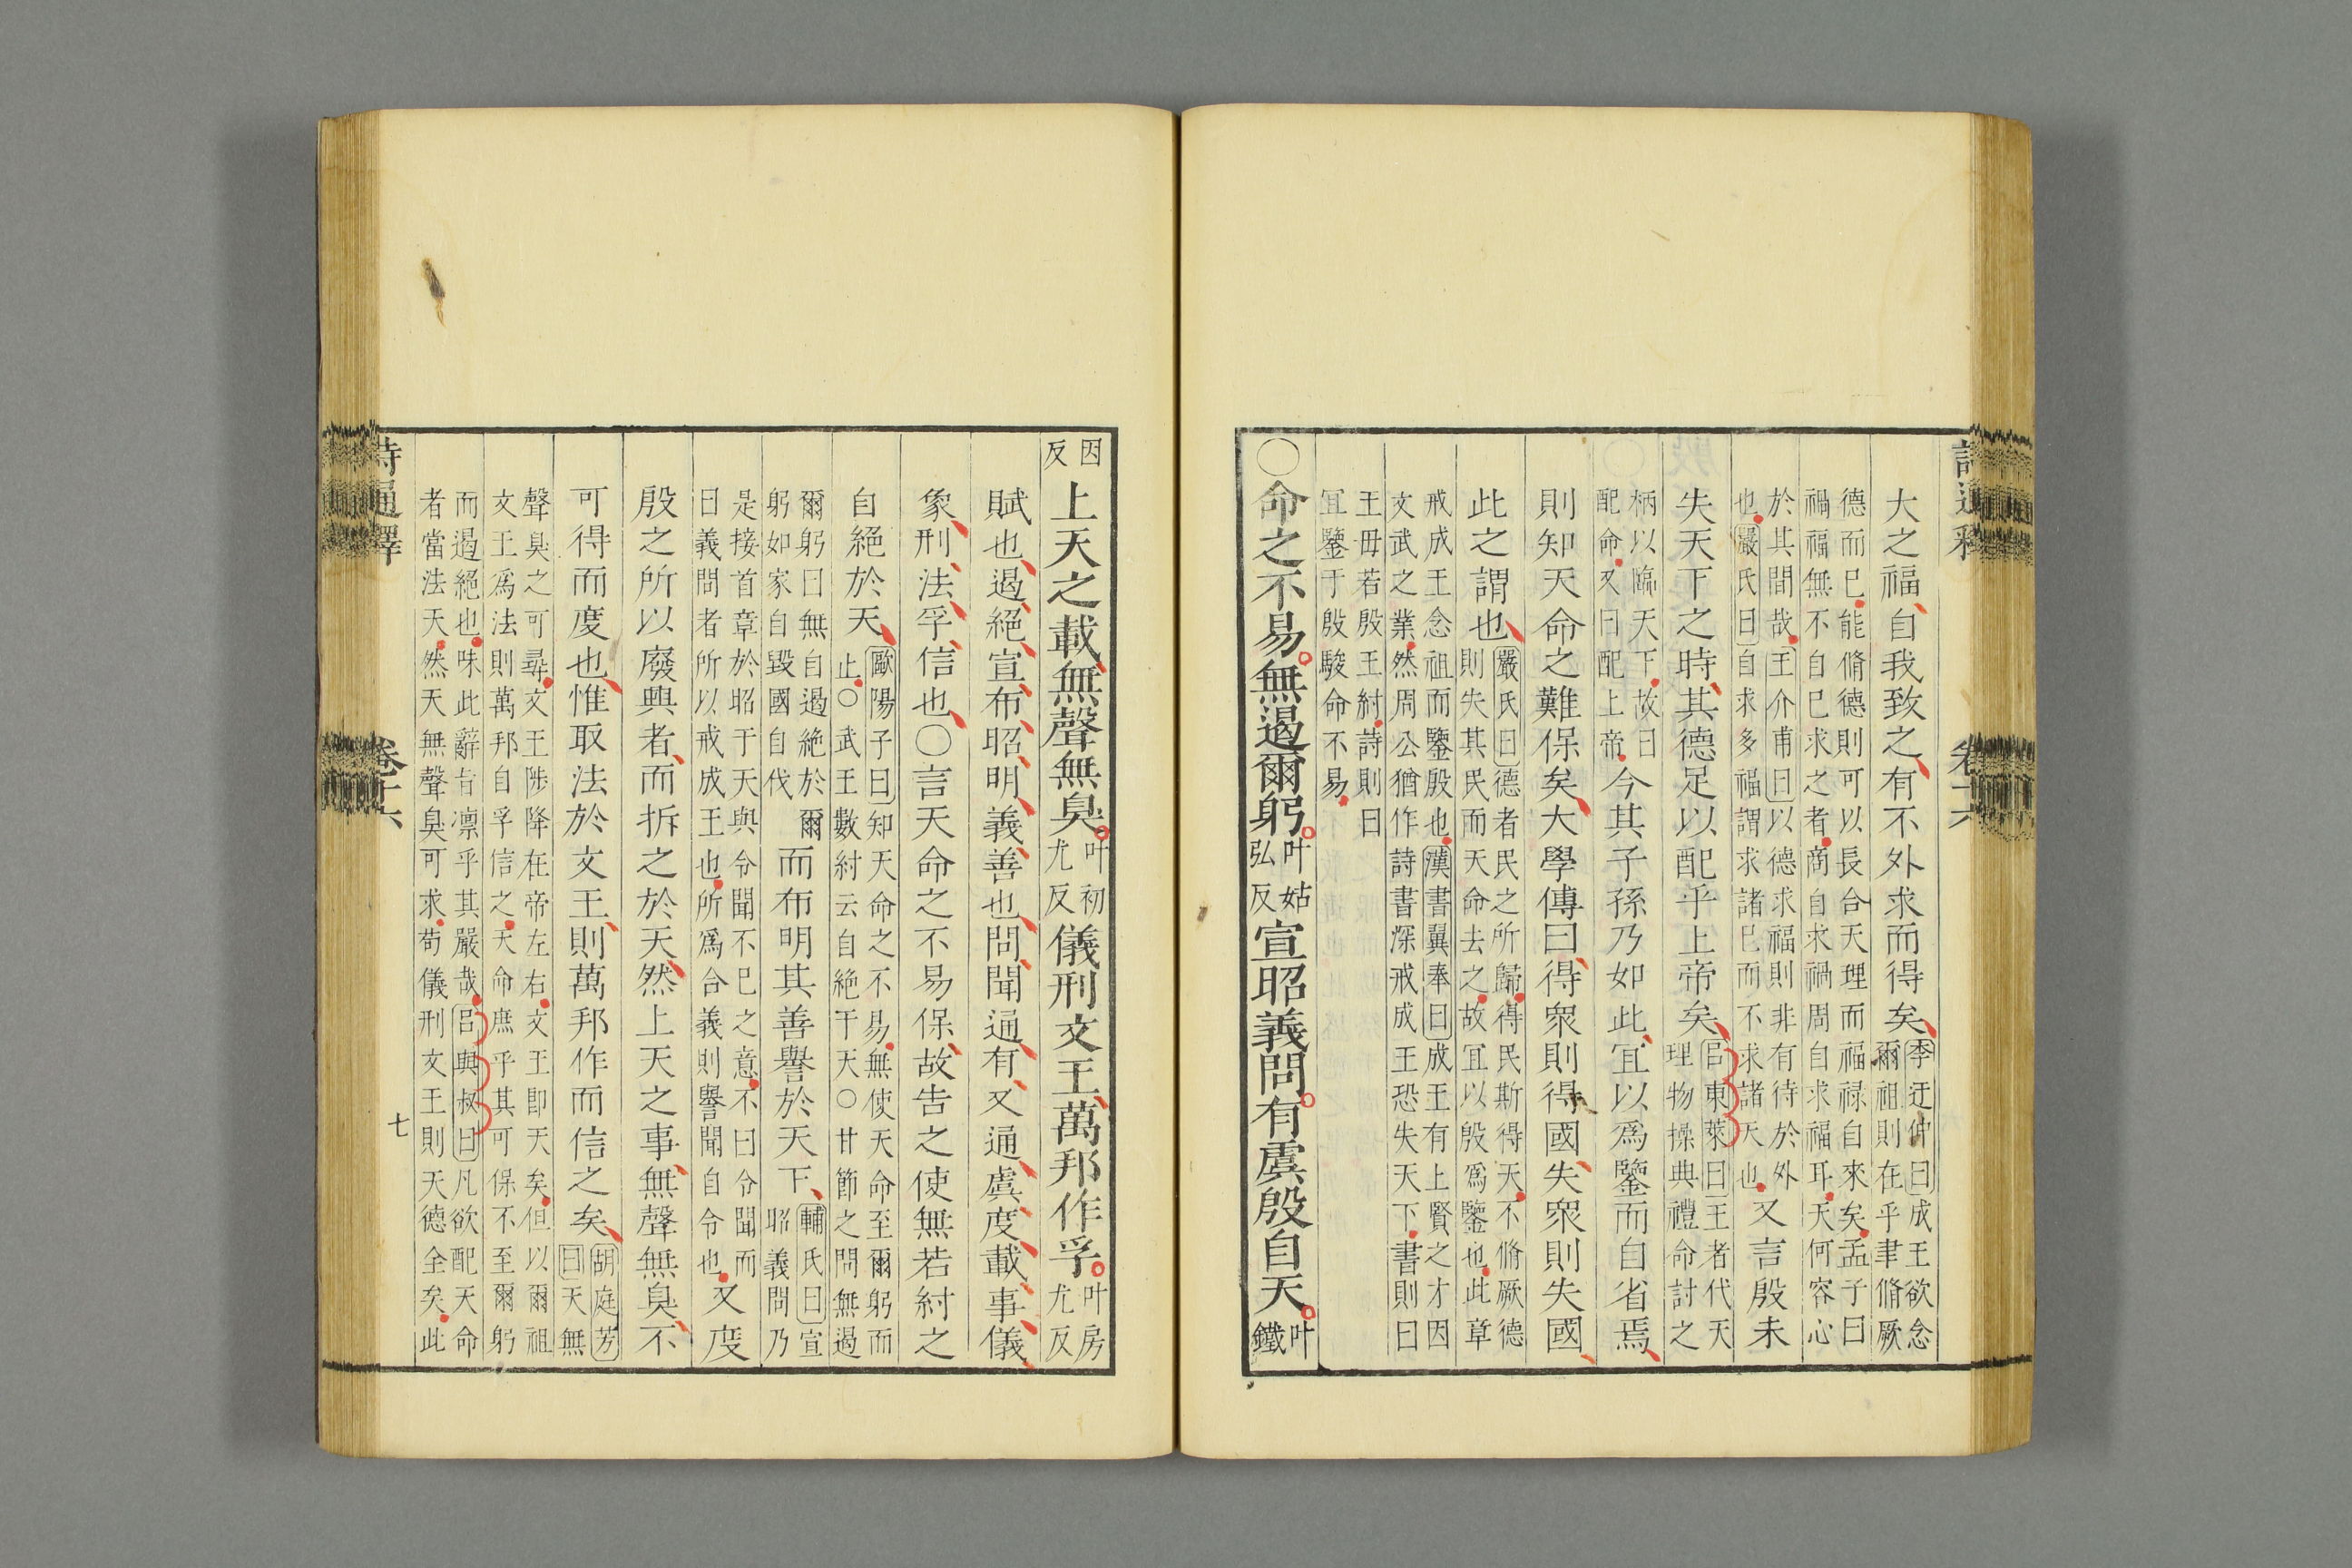 詩通釋 卷十六
大之福自我致之有不外求而得矣
李迂仲曰成王欲念
爾祖則在乎聿脩厥
德而已能脩德則可以長合天理而福禄自來矣孟子曰
禍福無不自已求之者商自求禍周自求福耳天何容心
於其間哉王介甫曰以德求福則非有待於外
也嚴氏曰自求多福謂求諸已而不求諸天也
又言殷未
失天下之時其德足以配乎上帝矣
呂東萊曰王者代天
理物操典禮命討之
柄以臨天下故曰
配命又曰配上帝
今其子孫乃如此宜以爲鑒而自省焉
則知天命之難保矣大學傳曰得衆則得國失衆則失國
此之謂也
嚴氏曰德者民之所歸得民斯得天不脩厥德
則失其民而天命去之故宜以殷爲鑒也此章
戒成王念祖而鑒殷也漢書翼奉曰成王有上賢之才因
文武之業然周公猶作詩書深戒成王恐失天下書則曰
王毋若殷王紂詩則曰
宜鑒于殷駿命不易
○命之不易無遏爾躬叶姑弘反宣昭義問有虞殷自天叶鐵
因反上天之載無聲無臭叶初尤反儀刑文王萬邦作孚叶房尤反
賦也遏絕宣布昭明義善也問聞通有又通虞度載事儀
象刑法孚信也○言天命之不易保故告之使無若紂之
自絕於天
歐陽子曰知天命之不易無使天命至爾躬而
止○武王數紂云自絕于天○廿節之問無遏
爾躬曰無自遏絕於爾
躬如家自毀國自伐
而布明其善譽於天下
輔氏曰宣
昭義問乃
是接首章於昭于天與令聞不已之意不曰令聞而
曰義問者所以戒成王也所爲合義則譽聞自令也
又度
殷之所以廢興者而折之於天然上天之事無聲無臭不
可得而度也惟取法於文王則萬邦作而信之矣
胡庭芳
曰天無
聲臭之可尋文王陟降在帝左右文王卽天矣但以爾祖
文王爲法則萬邦自孚信之天命庶乎其可保不至爾躬
而遏絕也味此辭旨凛乎其嚴哉呂與叔曰凡欲配天命
者當法天然天無聲臭可求苟儀刑文王則天德全矣此
詩通釋 卷十六 七